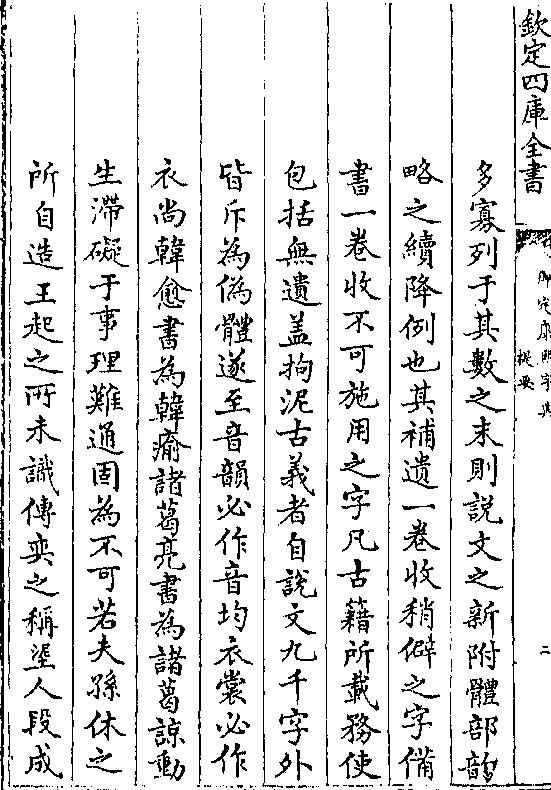 欽定四庫全書
御定康熙字典
提要
二
多寡列于其數之末則說文之新附體部韵
略之續降例也其補遺一卷收稍僻之字備
書一卷收不可施用之字凡古籍所載務使
包括無遺盖拘泥古義者自說文九千字外
皆斥為偽體遂至音韻必作音均衣裳必作
衣尚韓愈書為韓瘉諸葛亮書為諸葛諒動
生滯礙于事理難通固為不可若夫孫休之
所自造王起之所未識傅奕之稱埿人段成